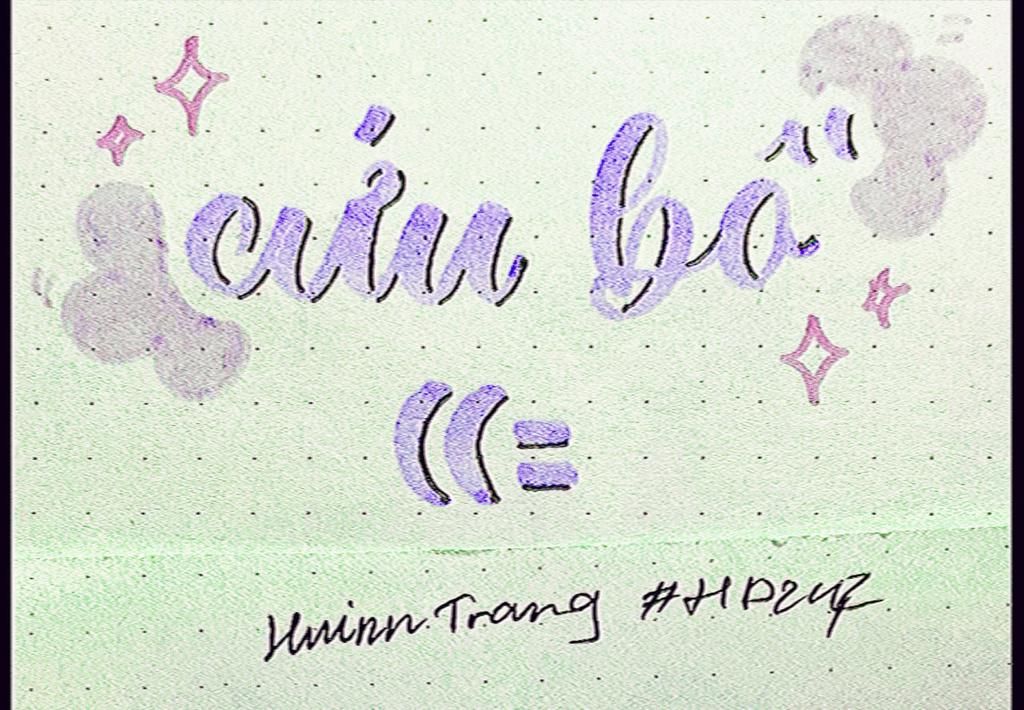 cứu bồ
((=
Huinn Trang #HD247